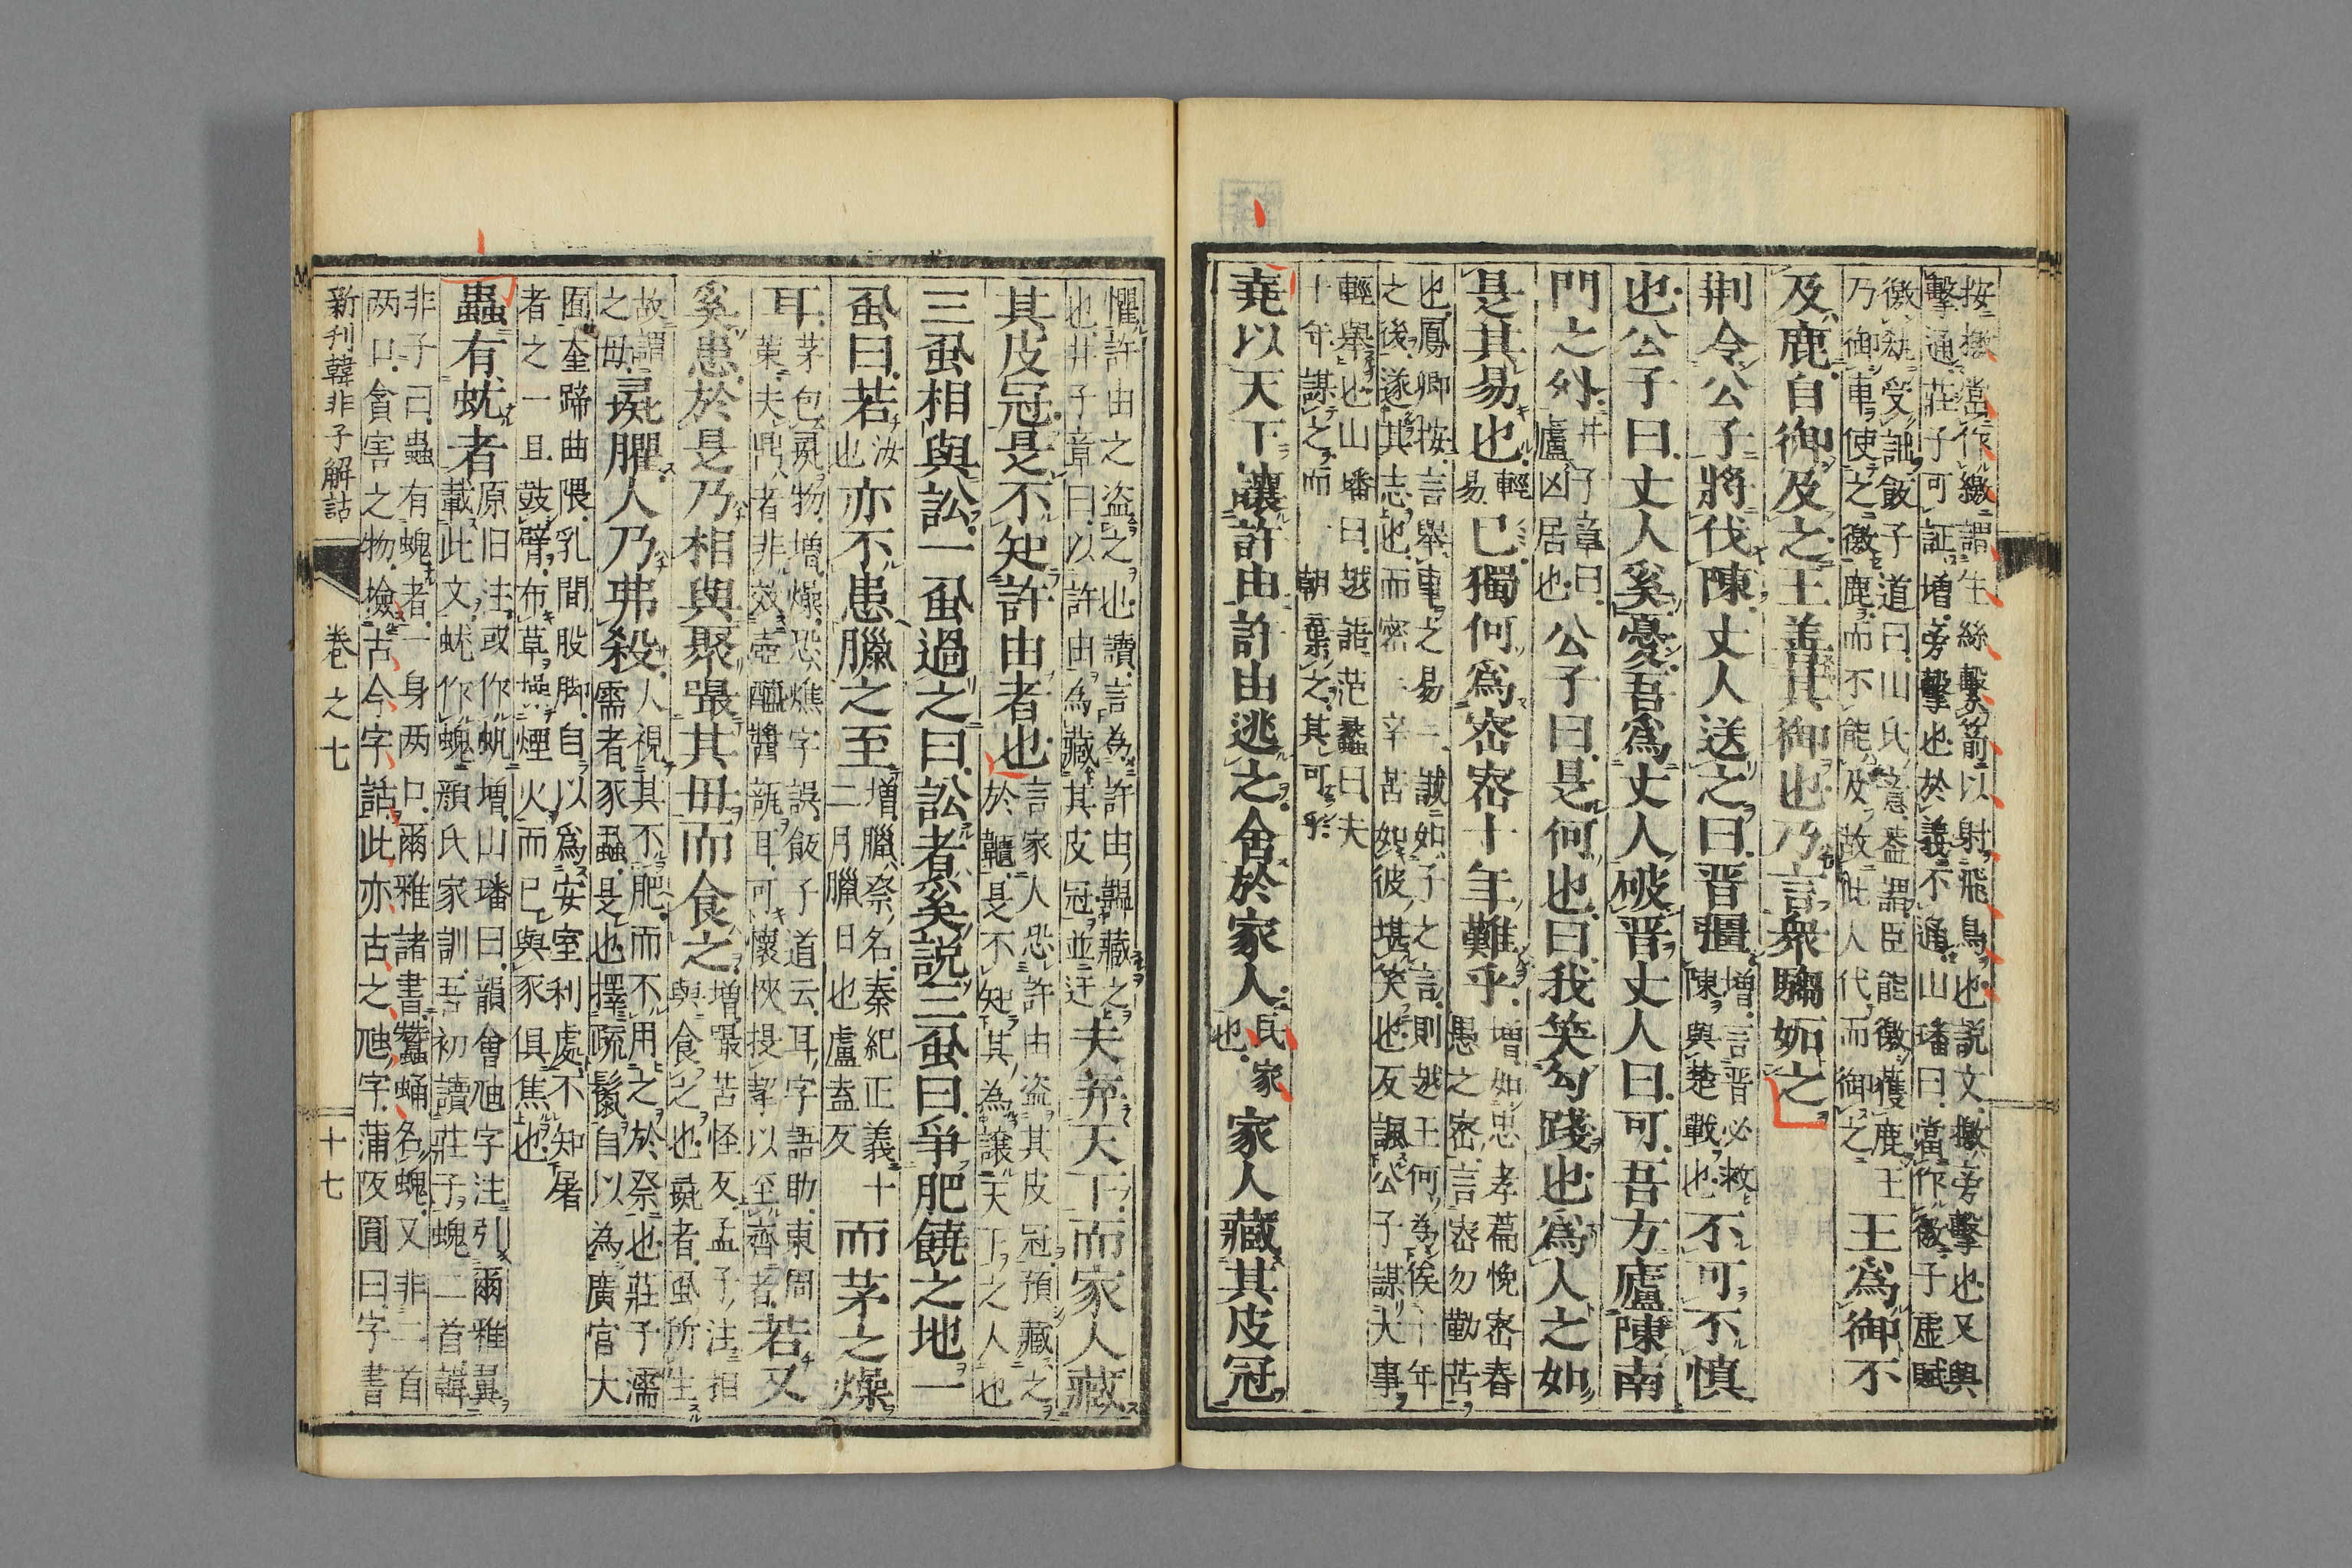 按撽當作繳謂生絲繫箭以射飛鳥也説文撽旁擊也又與
擊通莊子可証増旁擊也於義不通山璠曰當作徼子虚賦
徼𠜂受詘飯子道曰山氏意蓋謂臣能徼獲鹿王
乃御車使之徼鹿而不能及故此人代而御之
王爲御不
及鹿自御及之王善其御也乃言衆騶妬之
荆令公子將伐陳丈人送之曰晋彊
増言晋必救
陳與楚戰也
不可不慎
也公子曰丈人奚憂吾爲丈人破晋丈人曰可吾方廬陳南
門之外
井子章曰
廬凶居也
公子曰是何也曰我笑勾踐也爲人之如
是其易也
輕
易
已獨何爲宻宻十年難乎
増如忠孝篇悗宻春
愚之密言宻勿勤苦
也鳳卿按言舉事之易 誠如子之言則越王何為俟十年
之後遂其志也而密 辛苦如彼堪笑也反諷公子謀大事
輕舉也山璠曰越語范蠡曰夫
十年謀之而一朝棄之其可乎
堯以天下讓許由許由逃之舍於家人
民家
也
家人藏其皮冠
懼許由之盗之也讀言為許由韞藏之
也井子章曰以許由為藏其皮冠並迂
夫弃天下而家人藏
其皮冠是不知許由者也
言家人恐許由盗其皮冠預藏之
於韞是不知其為譲天下之人也
三虱相與訟一虱過之曰訟者奚説三虱曰爭肥饒之地一
虱曰若
汝
也
亦不患臘之至
増臘祭名秦紀正義十
二月臘日也盧盍反
而茅之燥
耳
茅包𡱁物増燥恐燋字誤飯子道云耳字語助東周
策夫鼎者非效壺醯醬甀耳可懷挾提挈以至齊者
若又
奚患於是乃相與聚嘬其毋而食之
増嘬苦怪反孟子注相
與食之也彘者虱所生
故謂
之毋
彘臞人乃弗殺
人視其不肥而不用之於祭也莊子濡
需者豕蝨是也擇疏鬣自以為廣宮大
囿奎蹄曲隈乳間股脚自以爲安室利處不知屠
者之一旦鼓臂布草操煙火而已與豕俱焦也
蟲有蚘者
原旧注或作蚘増山璠曰韻會虺字注引爾雅翼
載此文蚘作螝顔氏家訓吾初讀莊子螝二首韓
非子曰蟲有螝者一身两口爾雅諸書蠶蛹名螝又非二首
两口貪害之物撿古今字詁此亦古之虺字蒲阪圓曰字書
新刋韓非子解詁
巻之七
十七